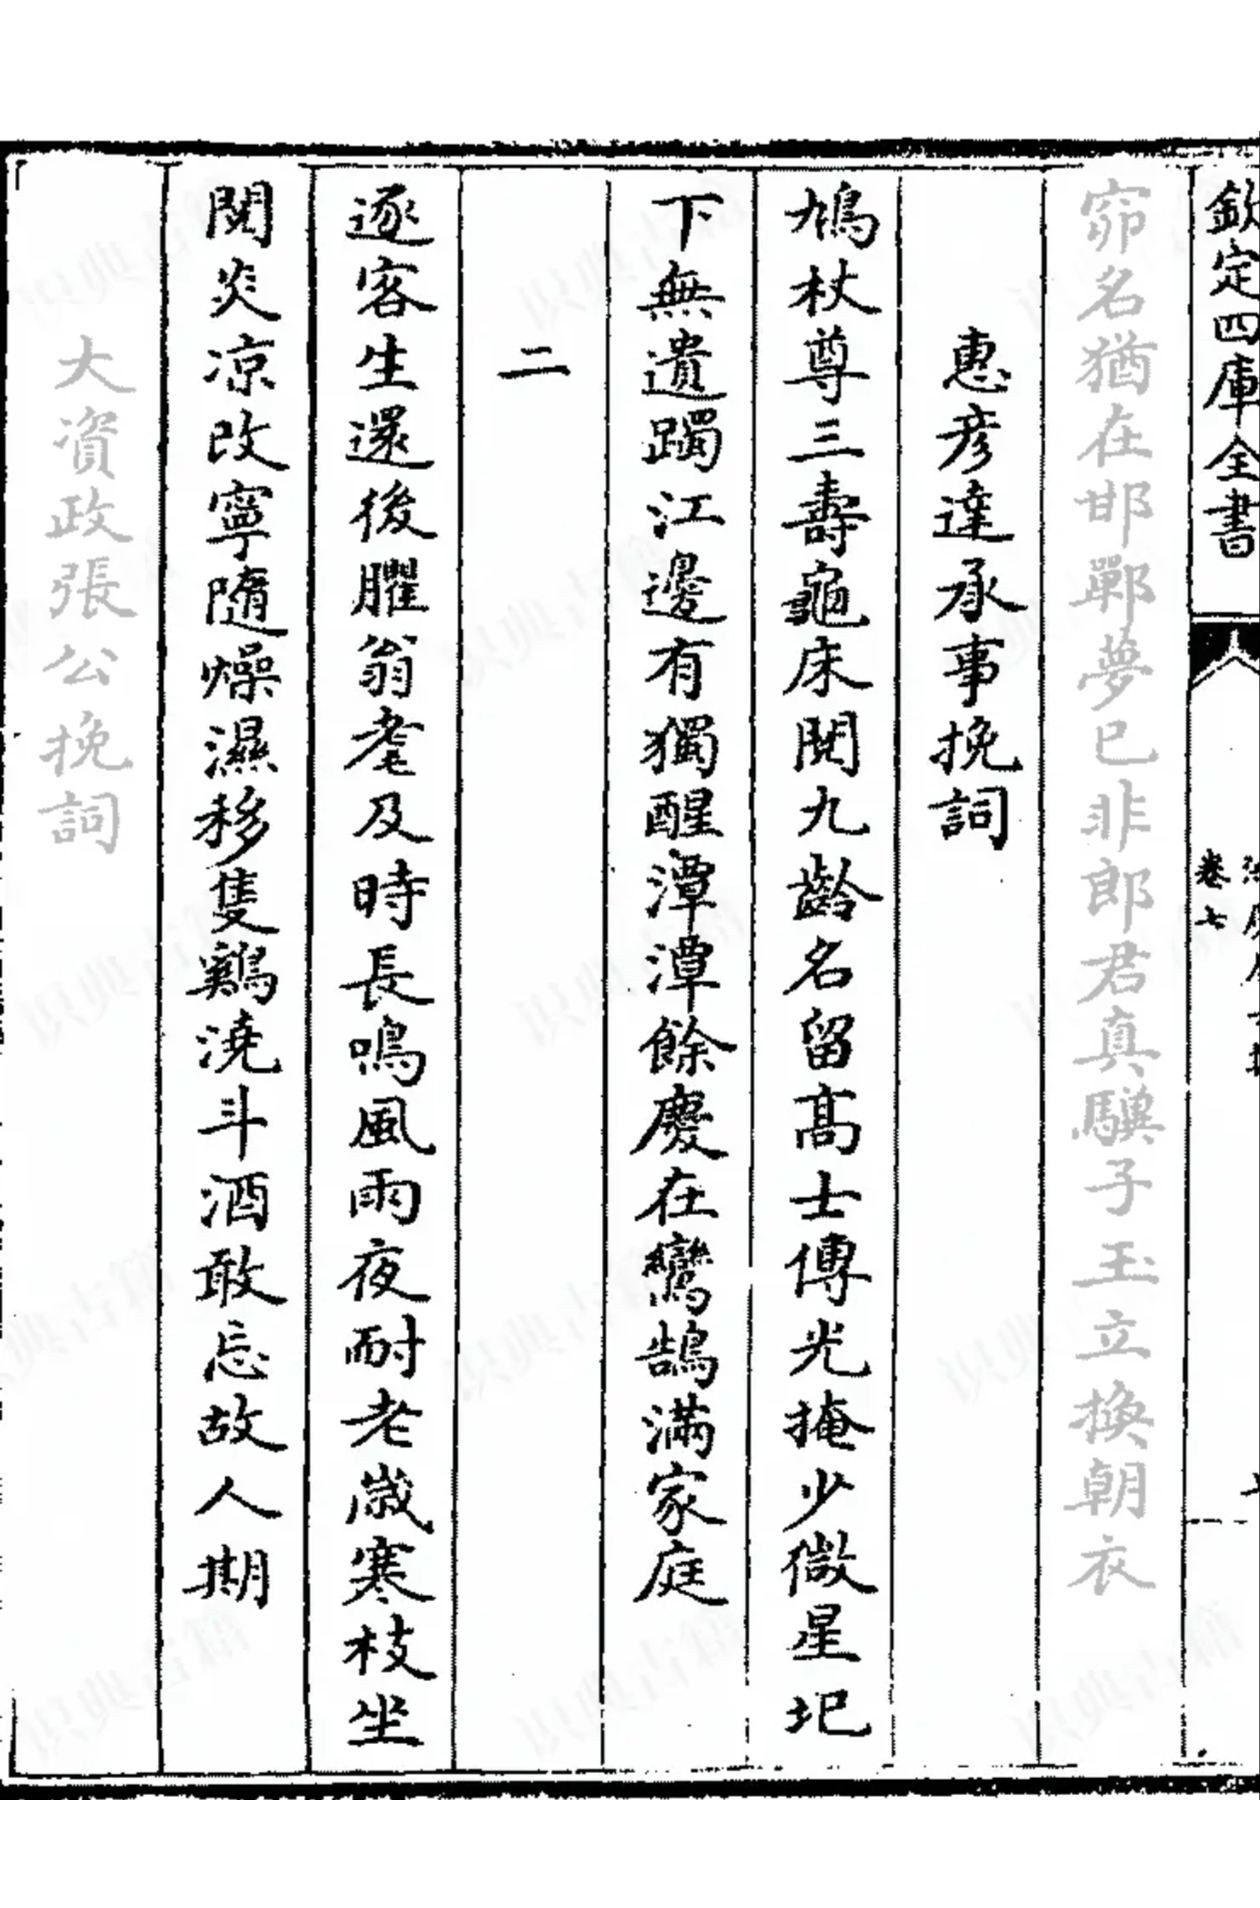 欽定四庫全書
卷七
窌名猶在邯鄲夢已非郎君真驥子玉立換朝衣
惠彦達承事挽詞
鳩杖尊三壽龜床閱九齡名留髙士傳光掩少微星圯
下無遺躅江邊有獨醒潭潭餘慶在鸞鵠滿家庭
二
逐客生還後臞翁耄及時長鳴風雨夜耐老歲寒枝坐
閱炎凉改寧隨燥濕移隻鷄澆斗酒敢忘故人期
大資政張公挽詞